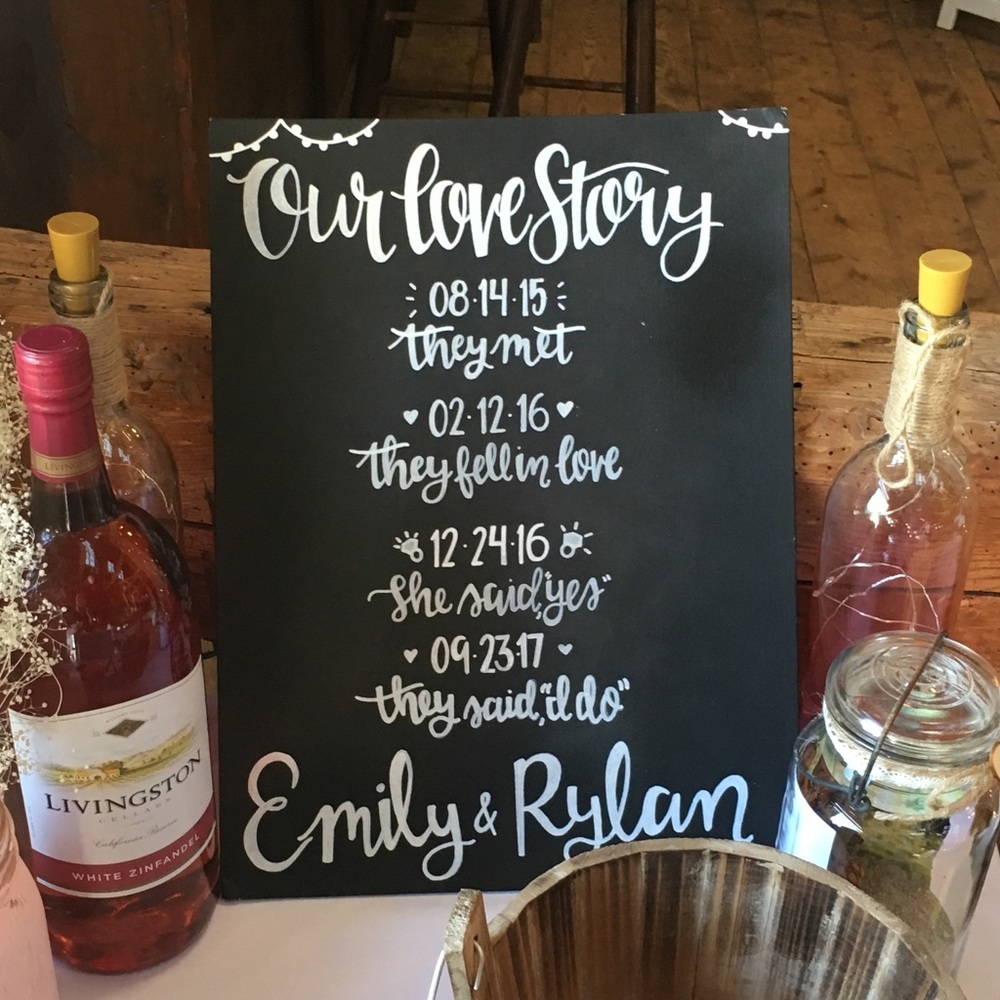 Our love Story
08·14·15
they met
02·12·16
they fell in love
12·24·16
she said, "yes"
09·23·17
they said, "I do"
Emily & Rylan
LIVINGSTON
LIVINGSTON
CELLARS
California Reserve
WHITE ZINFANDEL